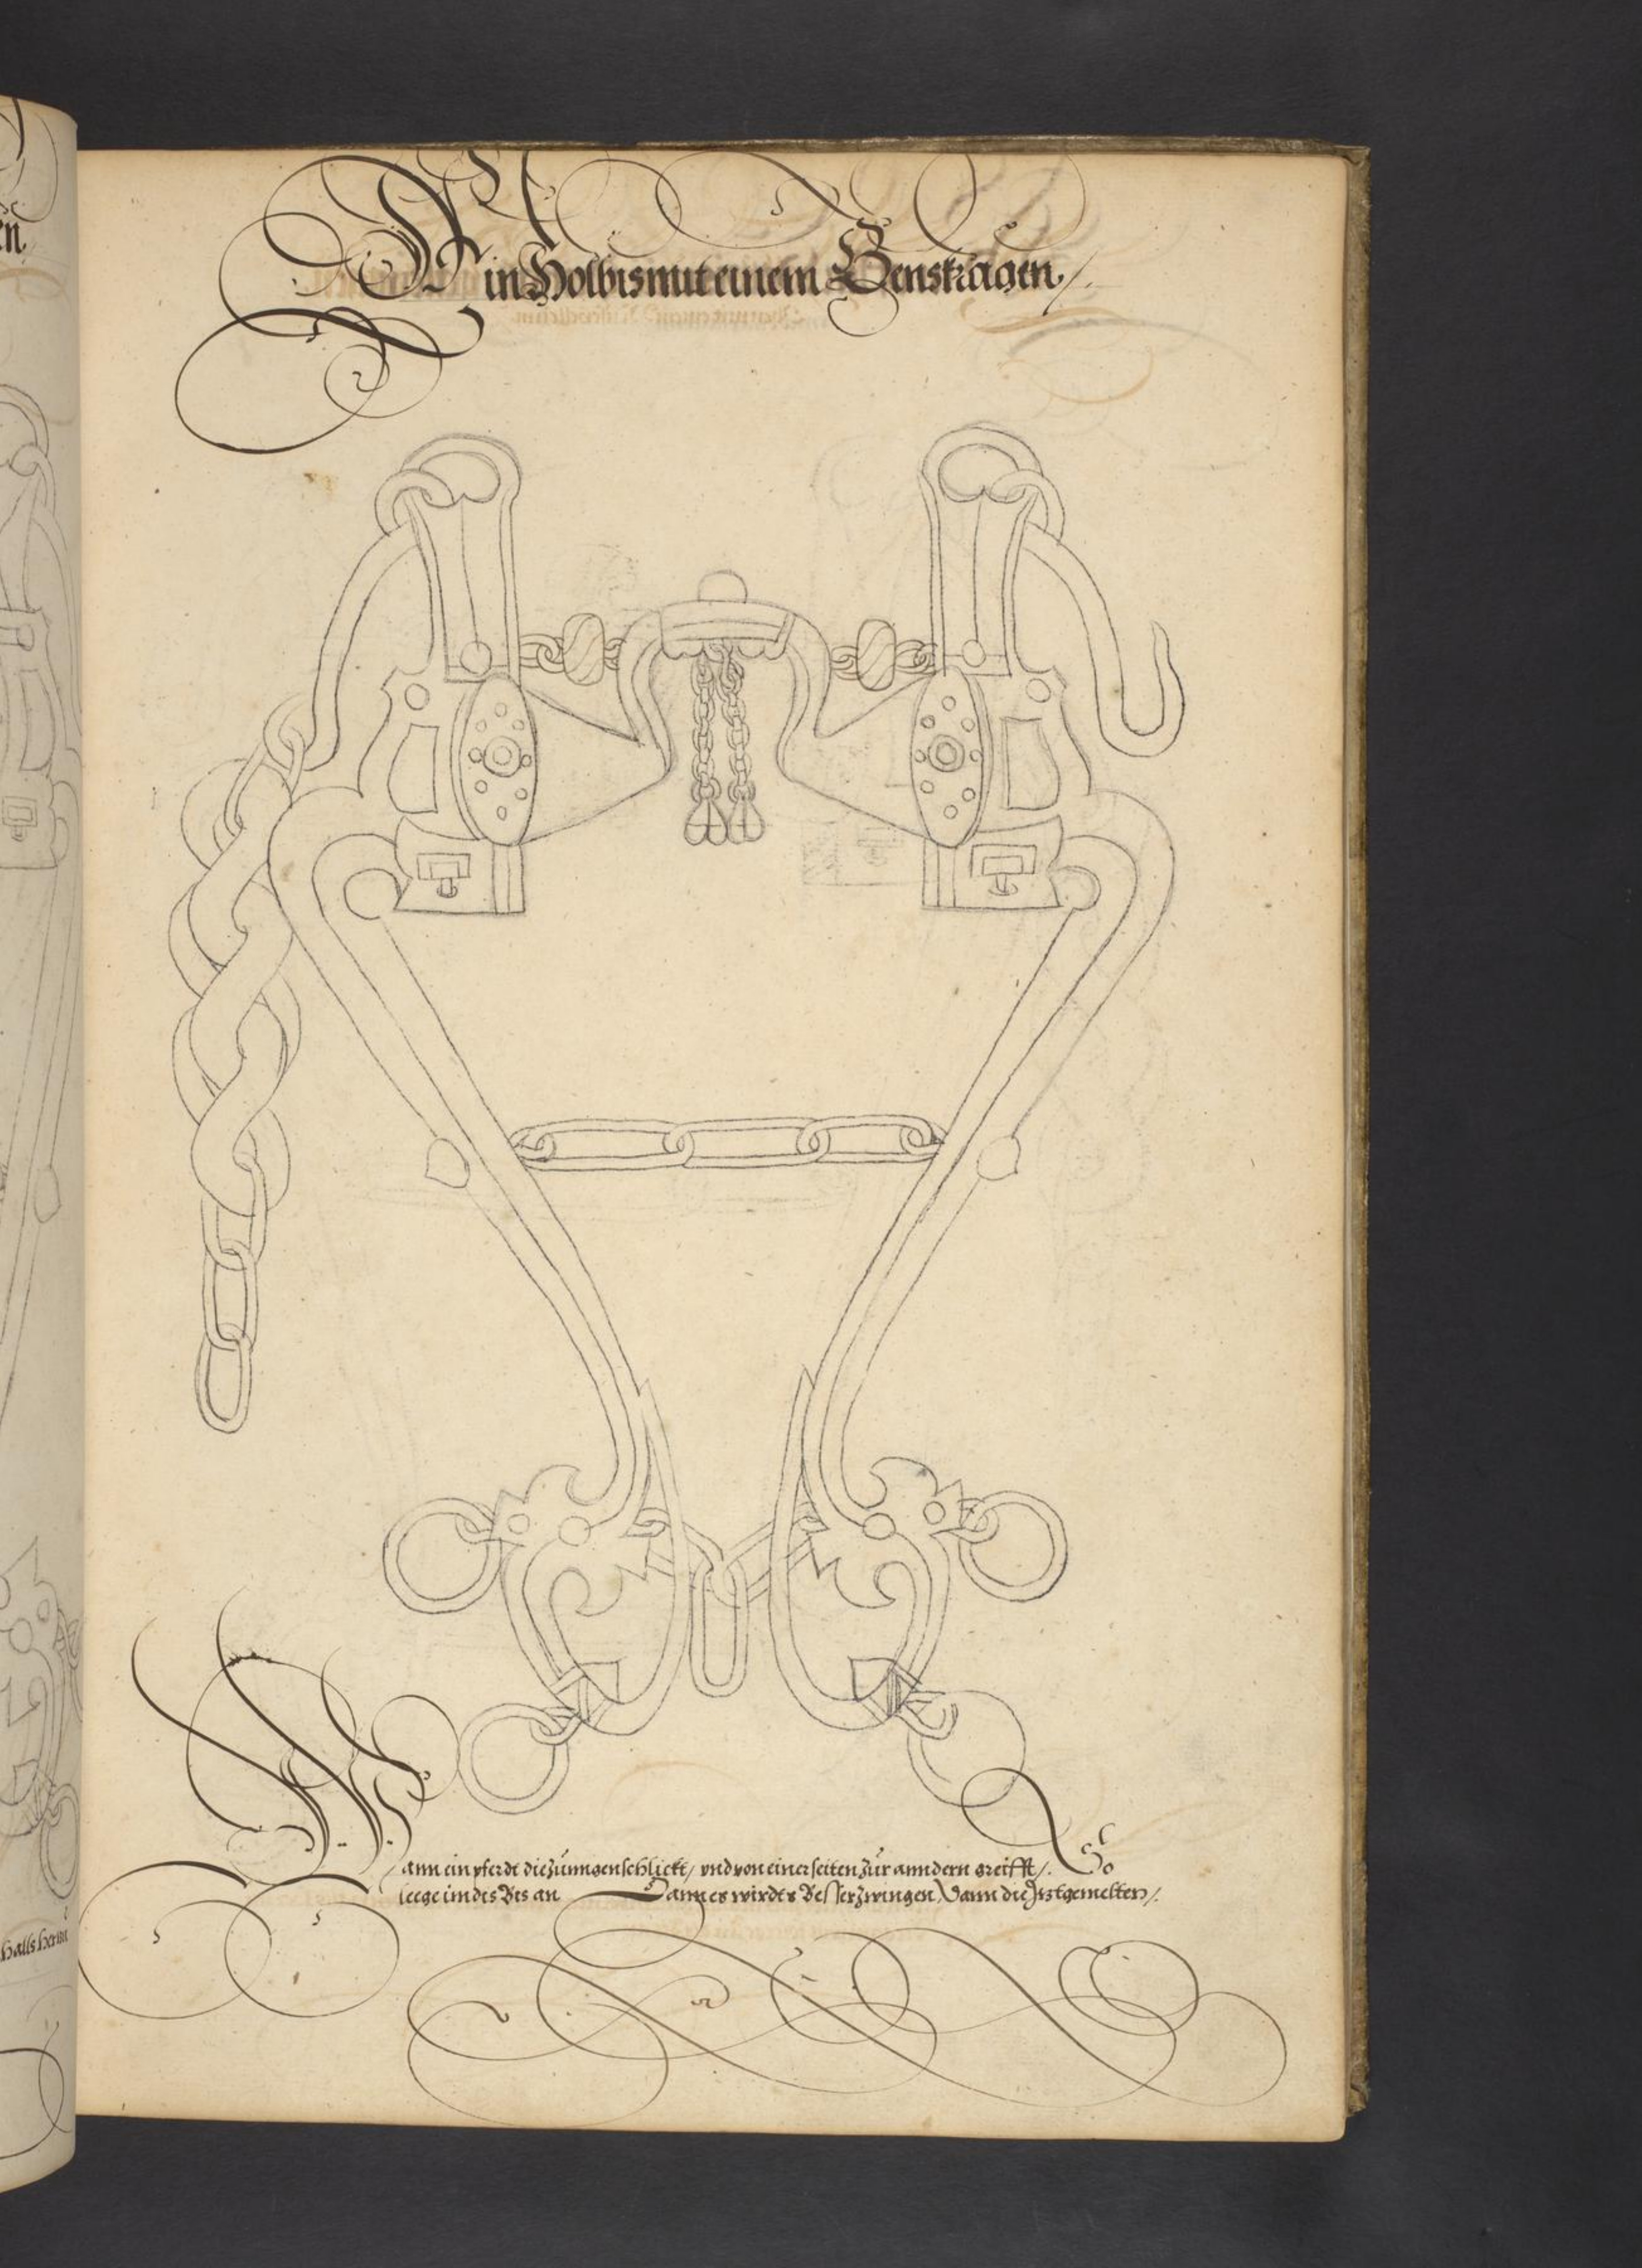 Ein Holbis mit einem Genskragen /.
Wann ein pferdt die zünngen schlickt / vnd von einer seiten zür anndern greifft /. So
leege im dis Bis an Dann es wirdts Besser zwingen Dann die Jtztgemelten /.
en
Halls